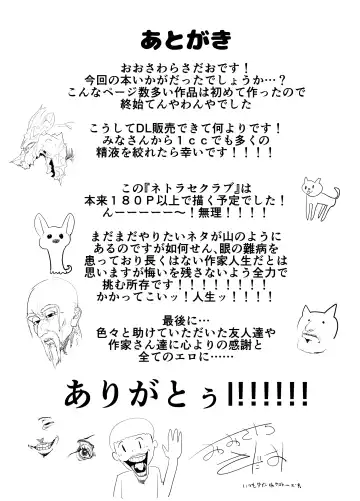 あとがき
おおさわらさだおです！
今回の本いかがだったでしょうか…？
こんなページ数多い作品は初めて作ったので
終始てんやわんやでした
こうしてDL販売できて何よりです！
みなさんから１ｃｃでも多くの
精液を絞れたら幸いです！！！！
この『ネトラセクラブ』は
本来１８０Ｐ以上で描く予定でした！
んーーーーー～！無理！！！！
まだまだやりたいネタが山のように
あるのですが如何せん、眼の難病を
患っており長くはない作家人生だとは
思いますが悔いを残さないよう全力で
挑む所存です！！！！！！！！
かかってこいッ！人生ッ！！！！
最後に…
色々と助けていただいた友人達や
作家さん達に心よりの感謝と
全てのエロに……
ありがとぅ!!!!!!!
おおさわら
さだお